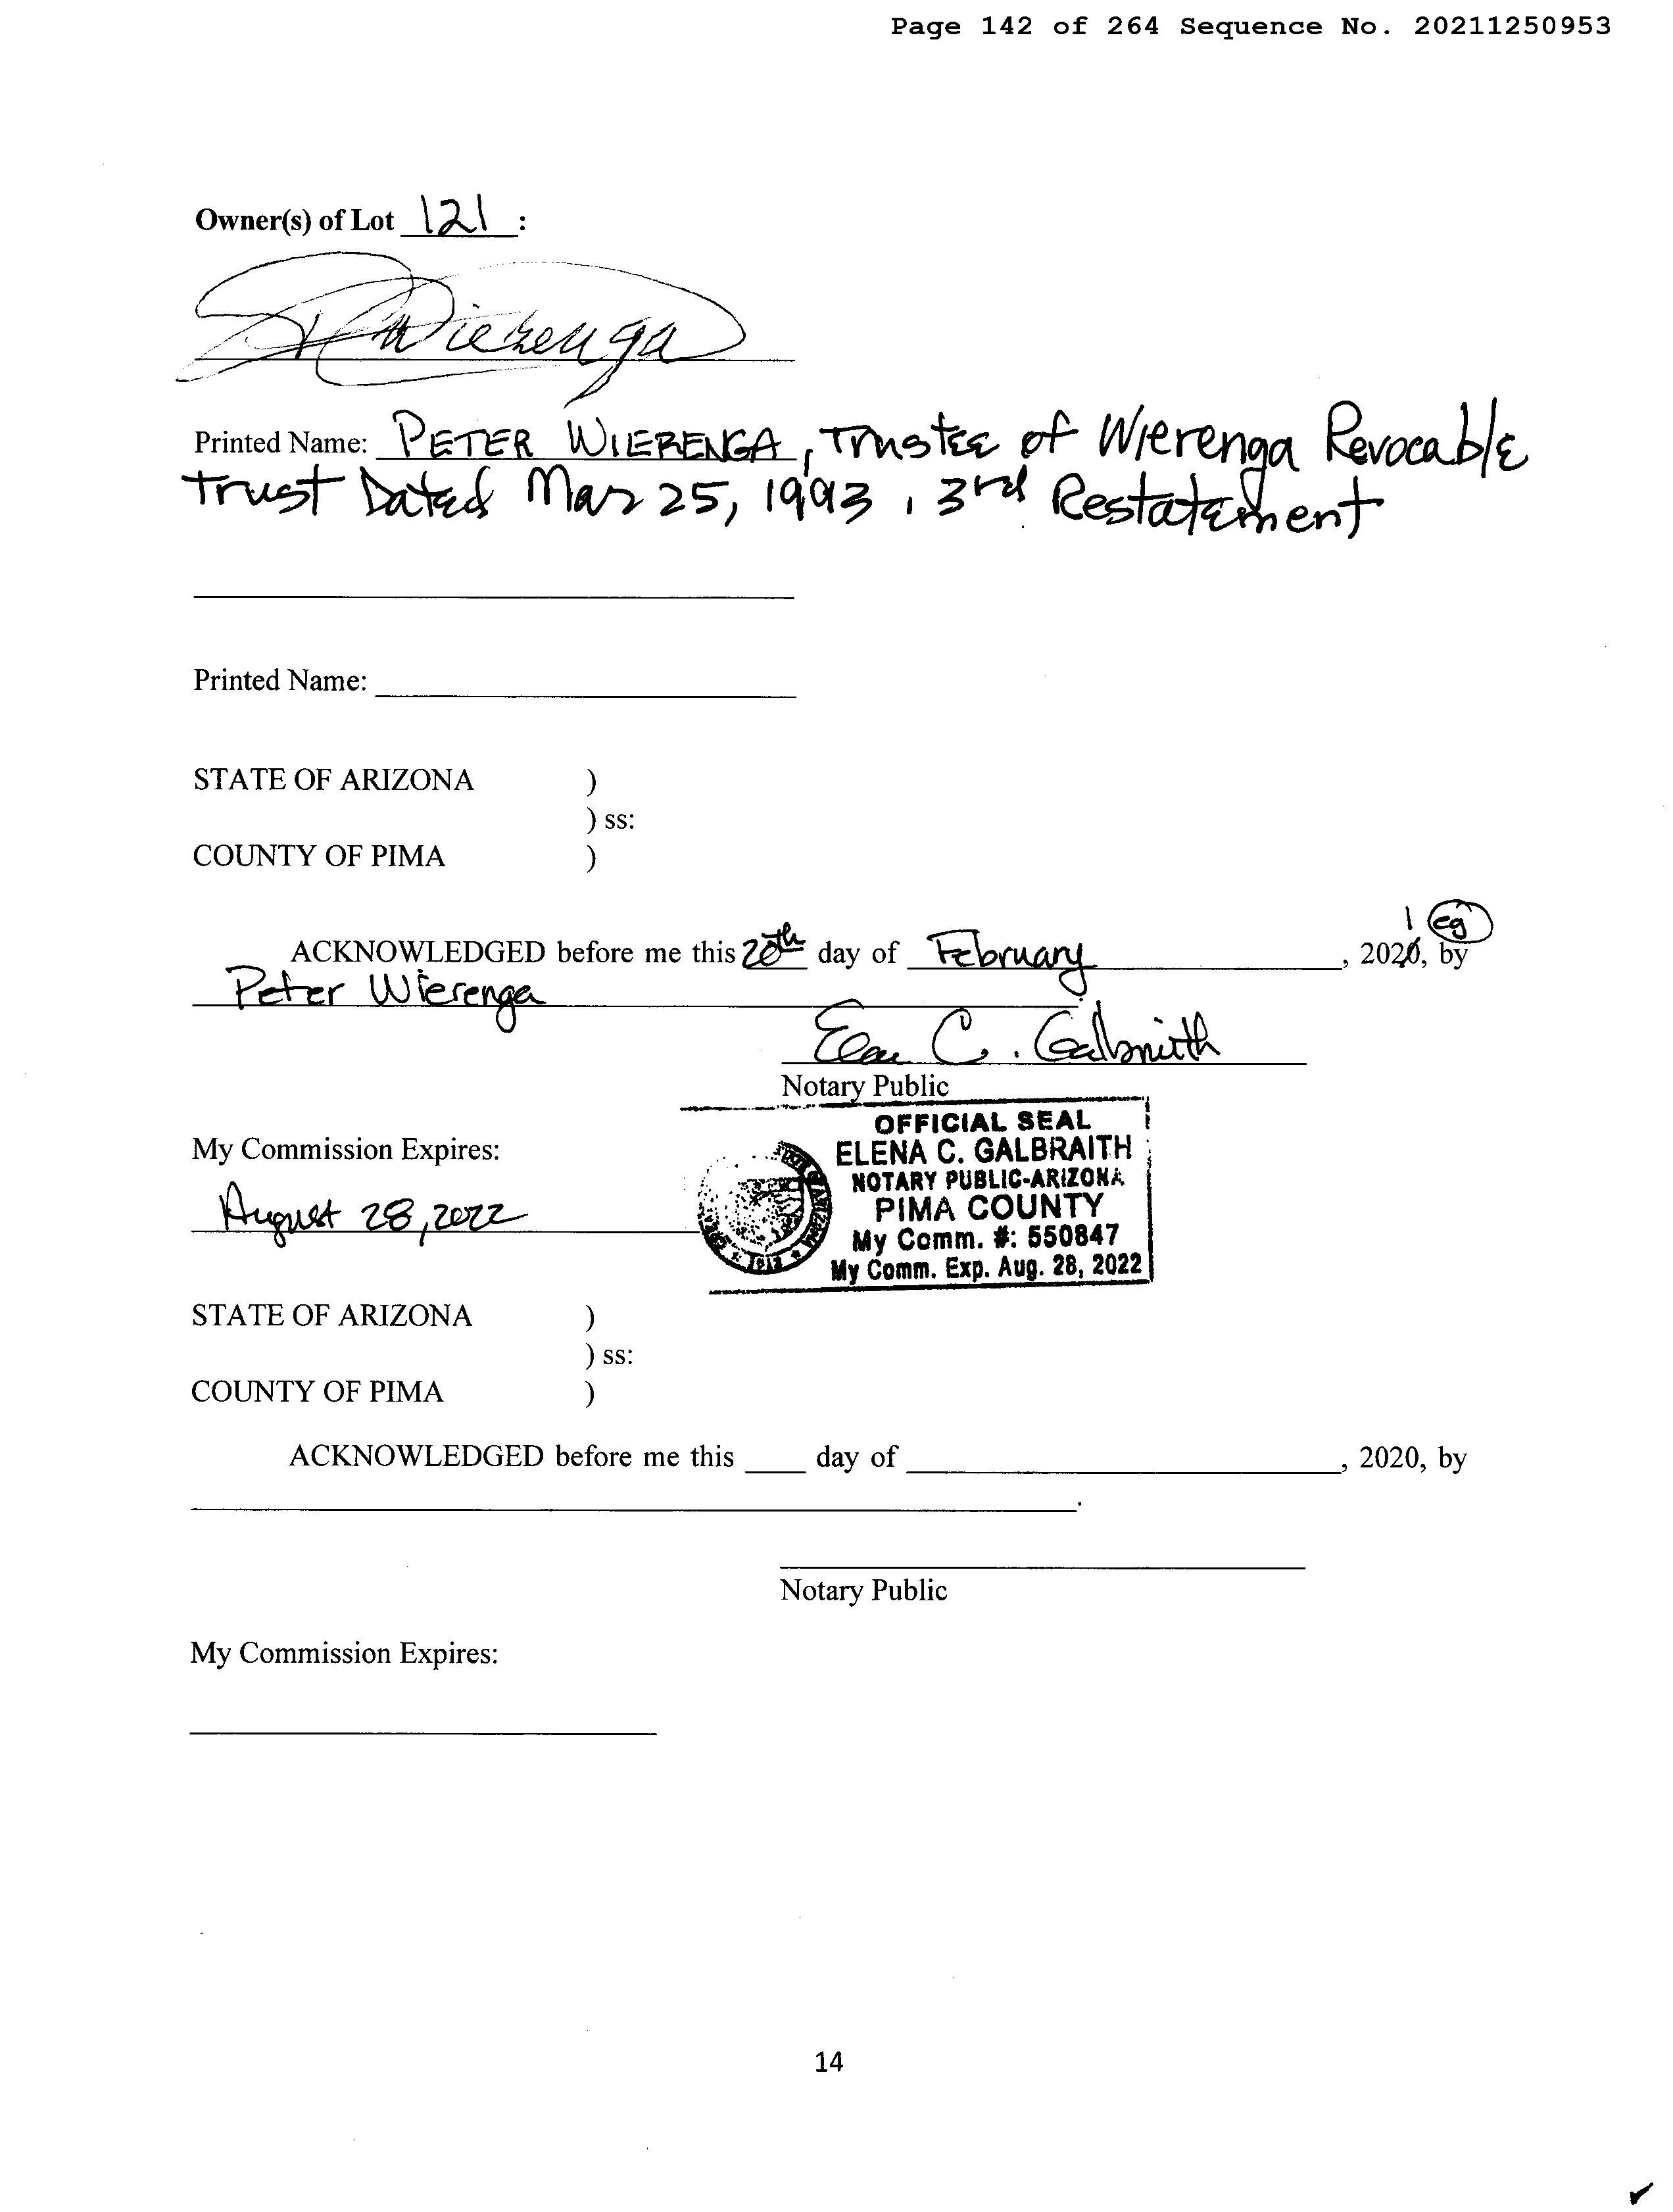 Page 142 of 264 Sequence No. 20211250953
Owner(s) of Lot 121 :
Wierenga
Printed Name: PETER WIERENGA, Trustee of Wierenga Revocable
Trust Dated Mar 25, 1993, 3rd Restatement
Printed Name:
STATE OF ARIZONA )
) ss:
COUNTY OF PIMA )
1 eg
ACKNOWLEDGED before me this 20th day of February, 2020, by
Peter Wierenga
Elena C. Galbraith
Notary Public
OFFICIAL SEAL
My Commission Expires:
ELENA C. GALBRAITH
NOTARY PUBLIC-ARIZONA
PIMA COUNTY
August 28, 2022
My Comm. #: 550847
My Comm. Exp. Aug. 28, 2022
1912
STATE OF ARIZONA )
) ss:
COUNTY OF PIMA )
ACKNOWLEDGED before me this ____ day of ____, 2020, by
Notary Public
My Commission Expires:
14